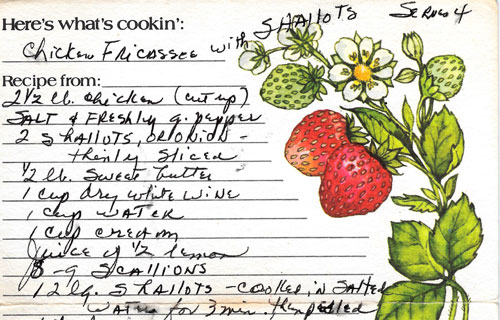 Here's what's cookin': Serves 4
Chicken Fricassee with SHALLOTS
Recipe from:
2 1/2 lb. chicken (cut up)
SALT & FRESHLY g. pepper
2 SHALLOTS, OR ONION -
thinly sliced
1/2 lb. Sweet butter
1 cup dry white wine
1 cup WATER
1 cup CREAM
Juice of 1/2 lemon
8-9 SCALLIONS
12 lg. SHALLOTS - COOKED in SALTED
WATER for 3 min. then peeled